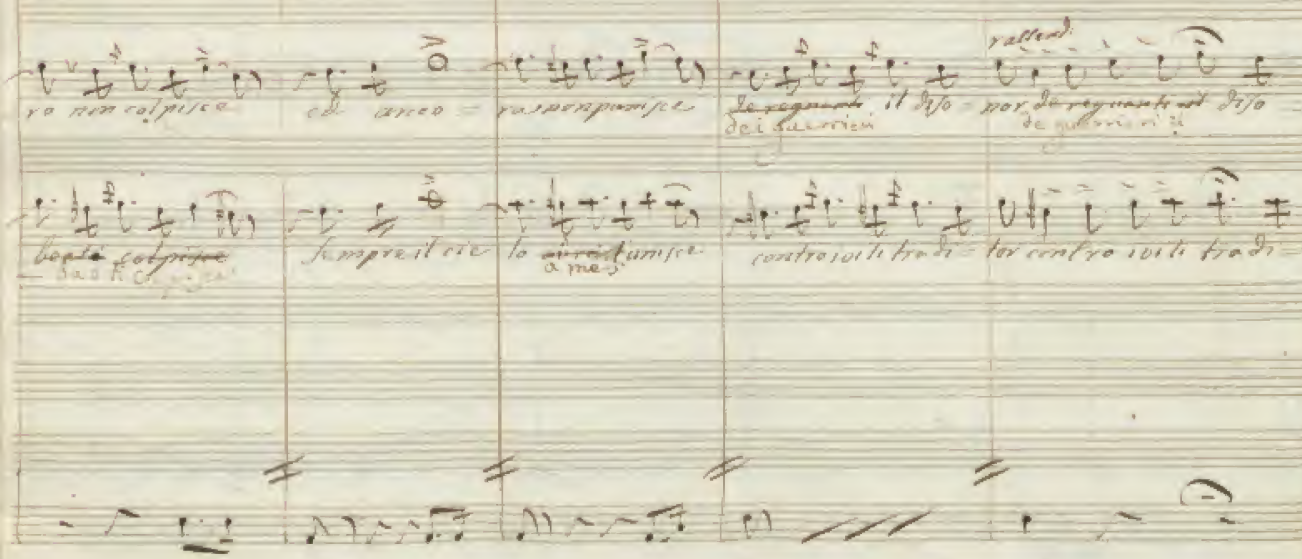 rallend:
ro non colpisce ed anco = ra non punisce de regnanti il diso = nor de regnanti il diso
dei guerrieri de guerrieri il
colpisce sempre il cie lo punisce contro i vili tradi = tor contro i vili tradi =
a me